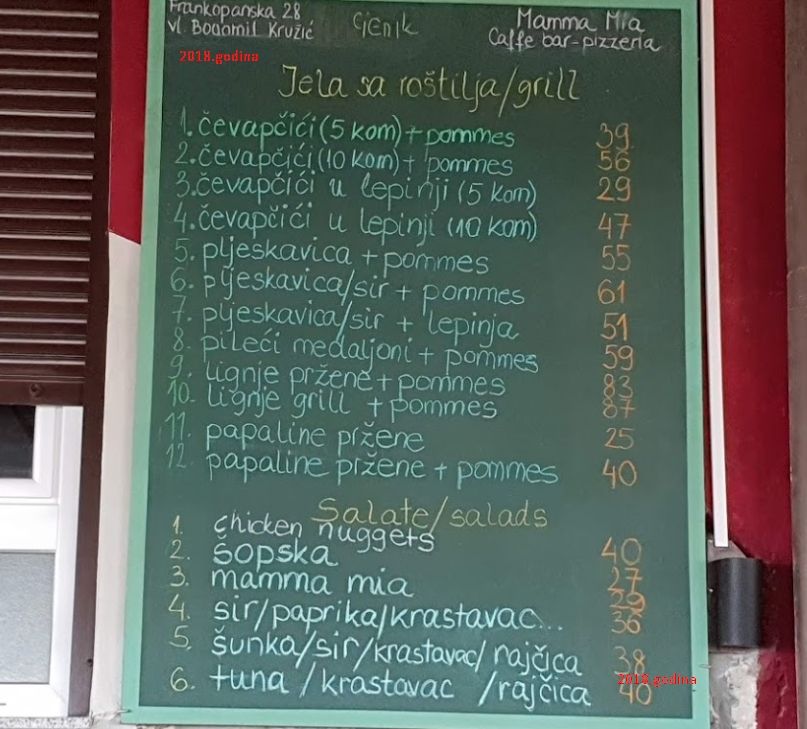 Frankopanska 28
vl. Bogomil Kružić
Cjenik
Mamma Mia
Caffe bar-pizzeria
2018.godina
Jela sa roštilja/grill
1. čevapčići (5 kom) + pommes 39
2. čevapčići (10 kom) + pommes 56
3. čevapčići u lepinji (5 kom) 29
4. čevapčići u lepinji (10 kom) 47
5. pljeskavica + pommes 55
6. pljeskavica/sir + pommes 61
7. pljeskavica/sir + lepinja 51
8. pileći medaljoni + pommes 59
9. lignje pržene + pommes 83
10. lignje grill + pommes 87
11. papaline pržene 25
12. papaline pržene + pommes 40
Salate/salads
1. chicken nuggets 40
2. šopska 27
3. mamma mia 29
4. sir/paprika/krastavac... 36
5. šunka/sir/krastavac/rajčica 38
6. tuna /krastavac /rajčica 40
2018.godina